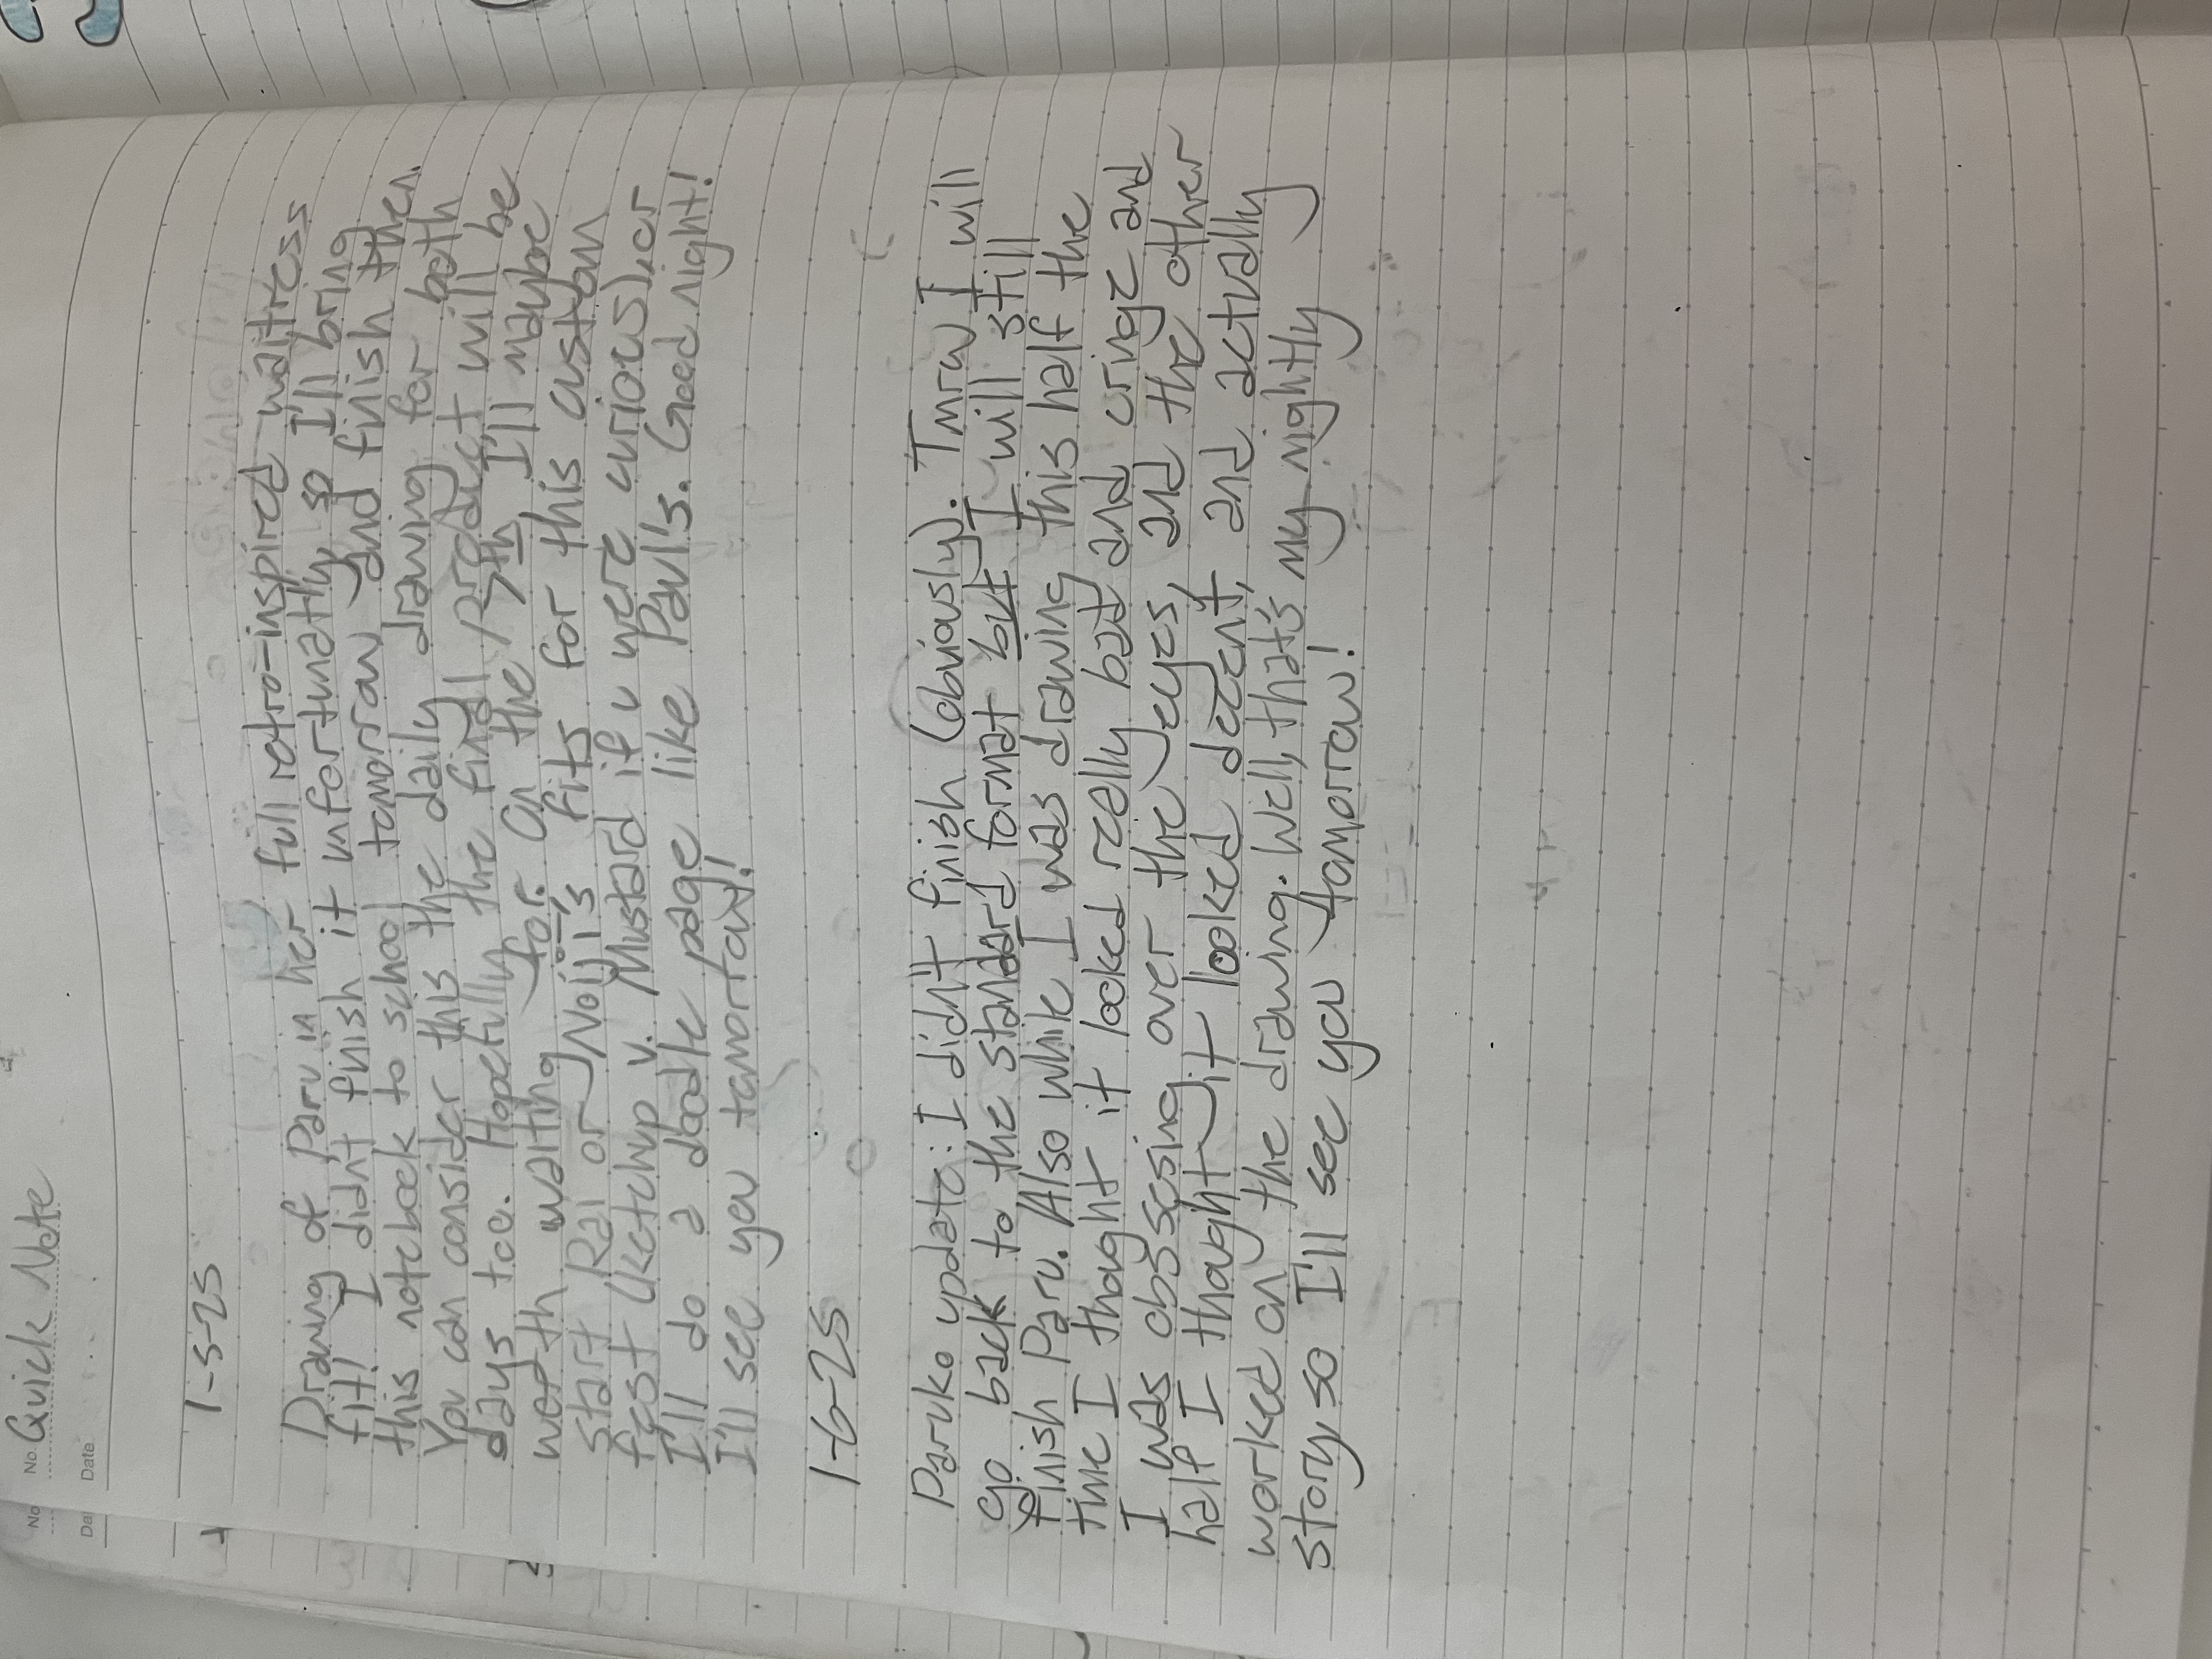 No. Quick Note
Date
1-5-25
Drawing of Paru in her full retro-inspired waitress
fit! I didn't finish it unfortunatly, so I'll bring
this notebook to school tomorrow and finish then.
You can consider this the daily drawing for both
days too. Hopefully the final product will be
worth waiting for. On the 7th, I'll maybe
start Rai or Noijii's fits for this custom
fest (ketchup v. Mustard if u were curious), or
I'll do a doodle page like Paul's. Good night!
I'll see you tomorrow!
1-6-25
Paruko update: I didn't finish (obviously). Tmrw I will
go back to the standard format but I will still
finish Paru. Also while I was drawing this half the
time I thought it looked really bad and cringe and
I was obssesing over the eyes, and the other
half I thought it looked decent, and actually
worked on the drawing. Well, that's my nightly
story, so I'll see you tomorrow!
No
Da